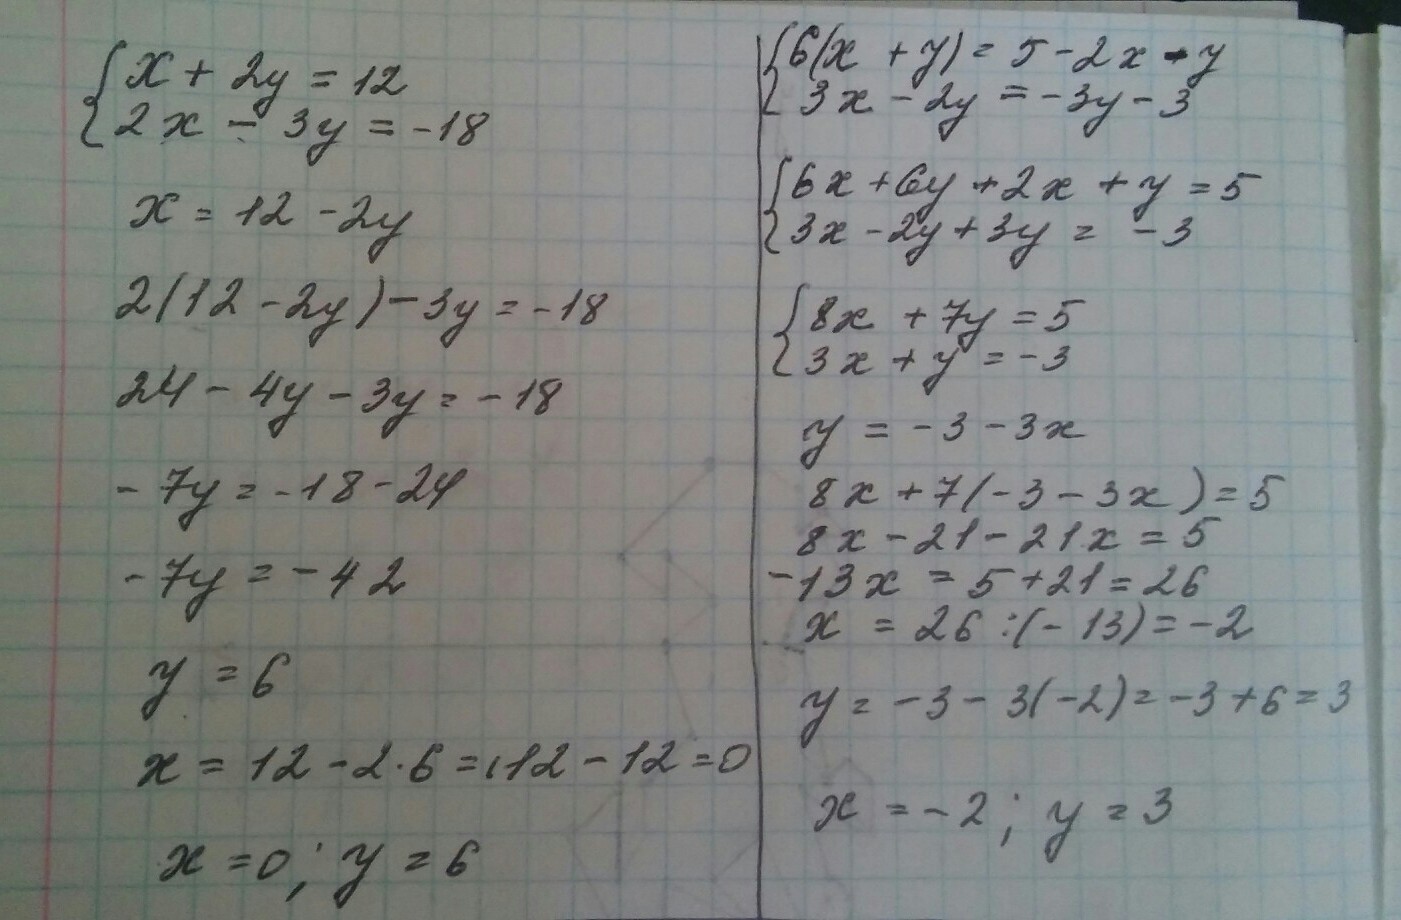 x + 2y = 12
2x - 3y = -18
x = 12 - 2y
2(12 - 2y) - 3y = -18
24 - 4y - 3y = -18
-7y = -18 - 24
-7y = -42
y = 6
x = 12 - 2·6 = 12 - 12 = 0
x = 0; y = 6
6(x + y) = 5 - 2x - y
3x - 2y = -3y - 3
6x + 6y + 2x + y = 5
3x - 2y + 3y = -3
8x + 7y = 5
3x + y = -3
y = -3 - 3x
8x + 7(-3 - 3x) = 5
8x - 21 - 21x = 5
-13x = 5 + 21 = 26
x = 26 : (-13) = -2
y = -3 - 3(-2) = -3 + 6 = 3
x = -2; y = 3